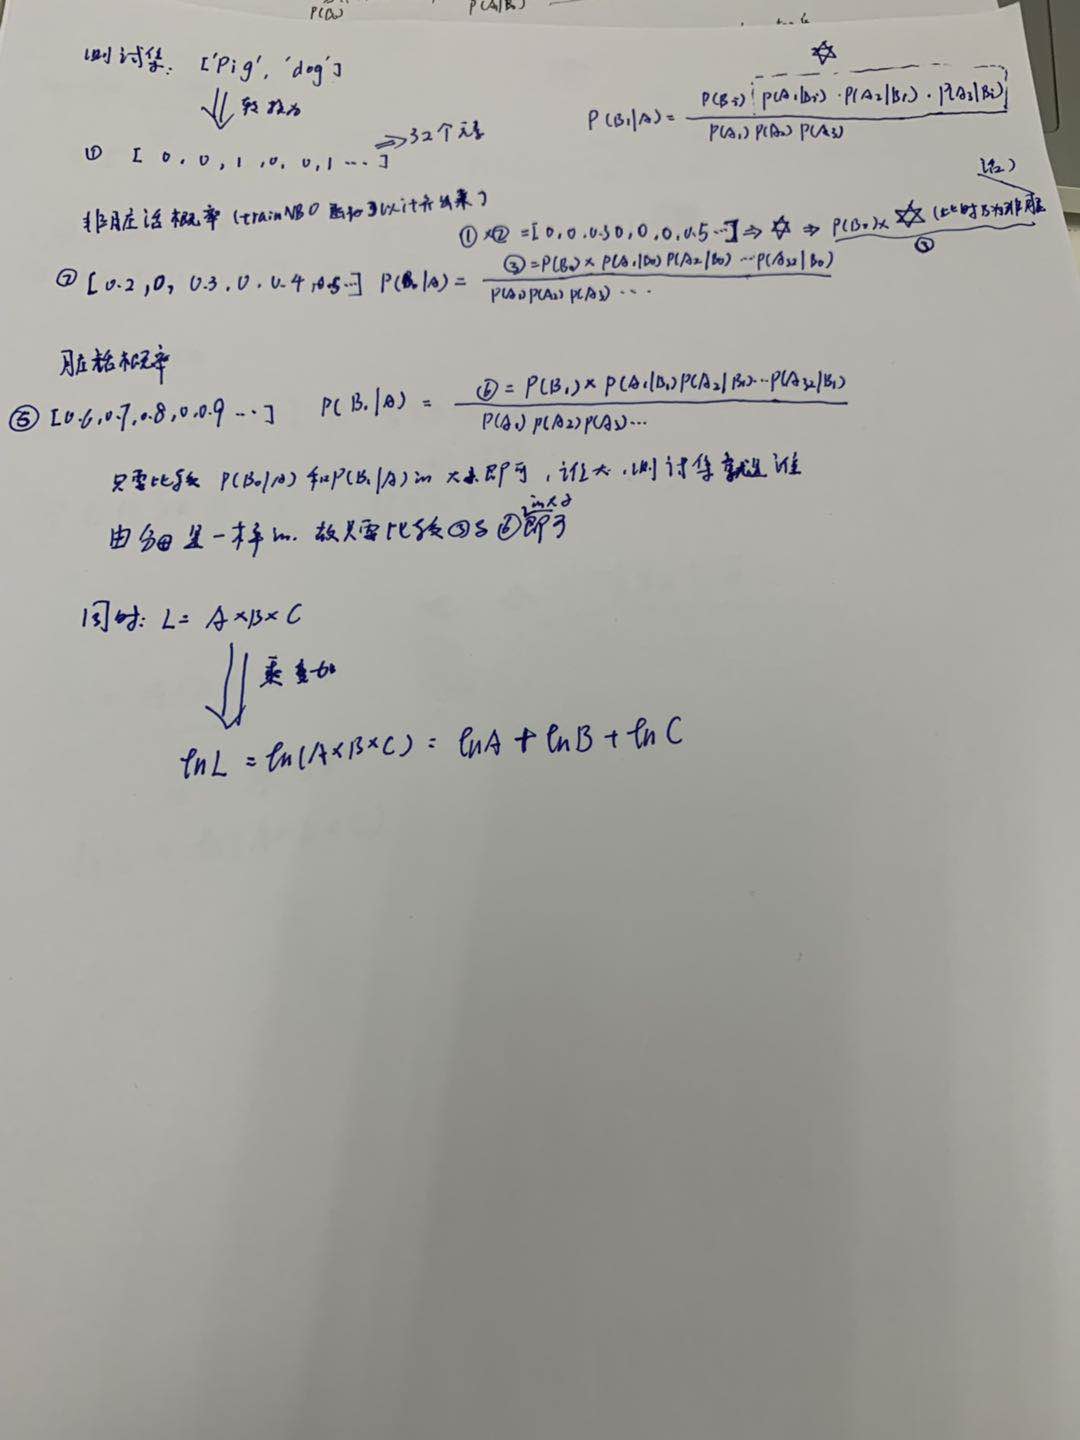 P(B₀)
P(A|B₀)
测试集: ['Pig', 'dog']
⇓ 转换为
① [0, 0, 1, 0, 0, 1 …] ⇒ 32个元素
P(Bᵢ|A) = P(Bᵢ) P(A₁|Bᵢ)·P(A₂|Bᵢ)·P(A₃|Bᵢ) / P(A₁)P(A₂)P(A₃)
✡
非脏话概率 (trainNB0 函数可以计算出来)
①×② = [0, 0, 0.3 0, 0, 0, 0.5 …] ⇒ ✡ ⇒ P(B₀)× ✡ (此时B为非脏
话)
③
② [0.2, 0, 0.3, 0, 0.4, 0.5 …] P(B₀|A) = ③ = P(B₀) × P(A₁|B₀) P(A₂|B₀) … P(A₃₂|B₀) / P(A₁)P(A₂)P(A₃) …
脏话概率
⑤ [0.6, 0.7, 0.8, 0, 0.9 …] P(B₁|A) = ⑥ = P(B₁) × P(A₁|B₁) P(A₂|B₁) … P(A₃₂|B₁) / P(A₁)P(A₂)P(A₃) …
只需比较 P(B₀|A) 和 P(B₁|A) 的大小即可, 谁大, 测试集就是谁
由分母是一样的, 故只需比较③与⑥的大小即可
同时: L = A×B×C
⇓ 乘变加
lnL = ln(A×B×C) = lnA + lnB + lnC